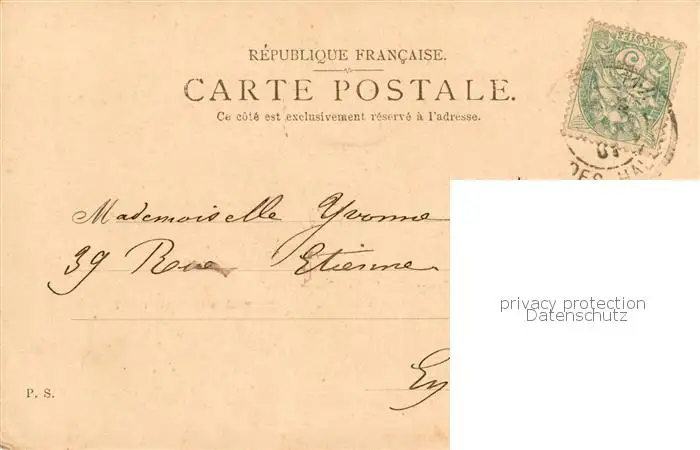 RÉPUBLIQUE FRANÇAISE.
CARTE POSTALE.
Ce côté est exclusivement réservé à l'adresse.
POSTES
5
01
DES HAL
Mademoiselle Yvonne
39 Rue Etienne
privacy protection
Datenschutz
Ey
P. S.